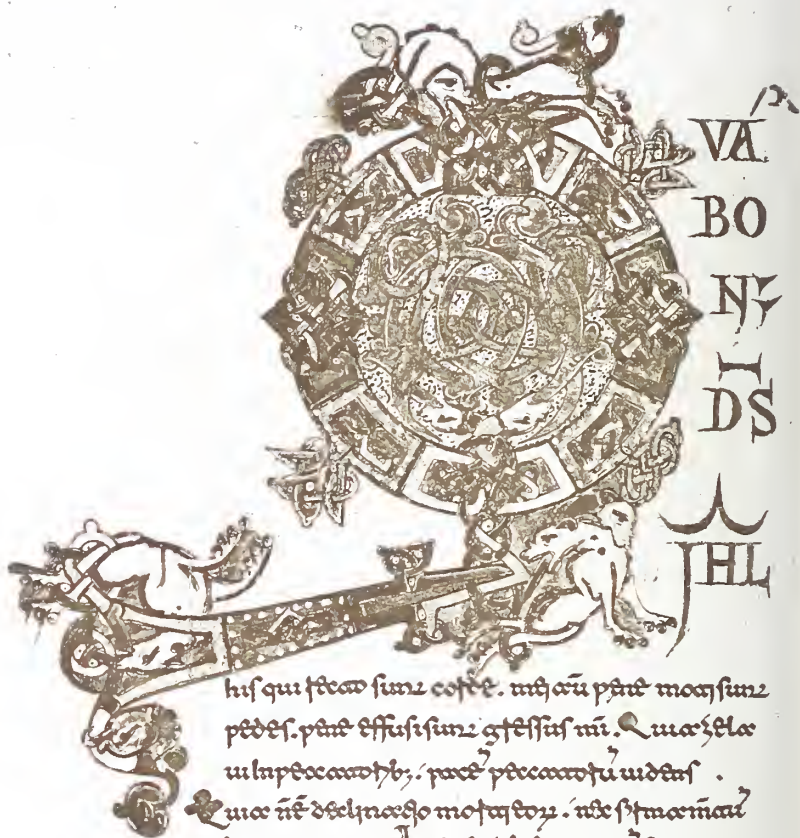 Q
VÁ
BO
N;
D̄S
IHL
his qui recto sunt corde. mei aū pene moti sunt
pedes. pene effusi sunt gressus mī. Quia zela
ui in peccatorib;. pace peccatorū uidens.
Quia nē declinatio morti eorū. nec